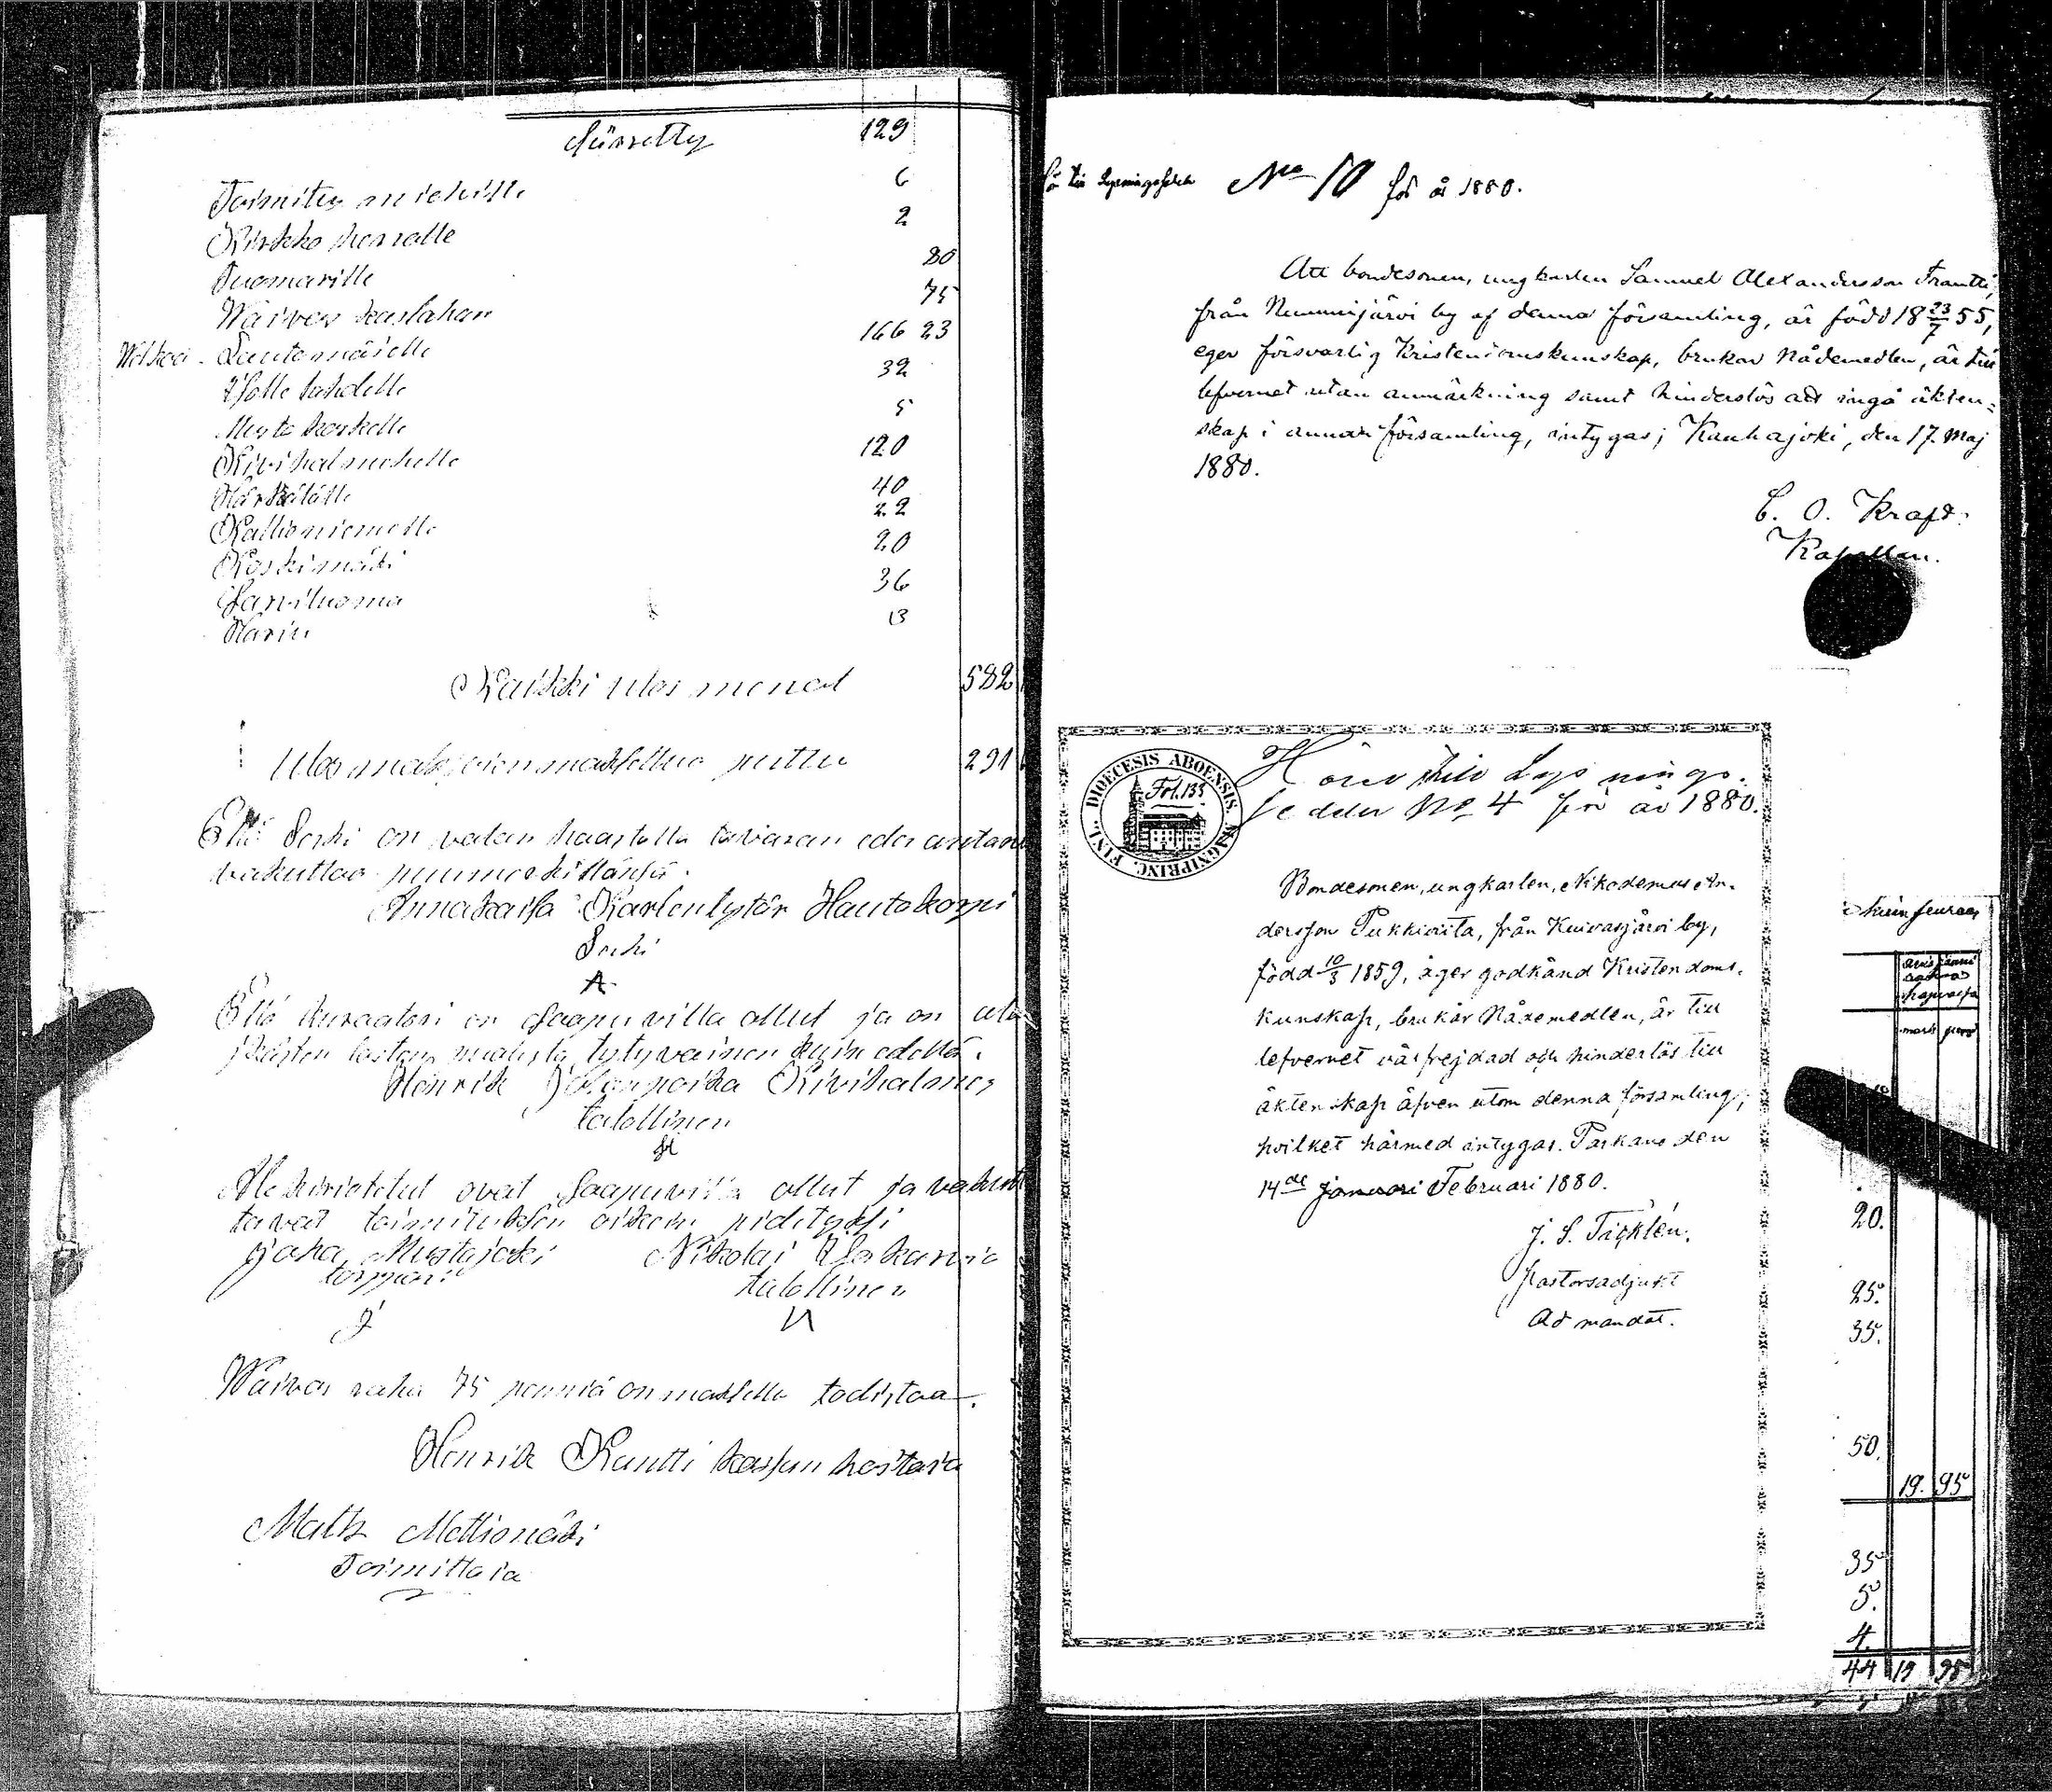 Siirretty 129
Toimitus miehille 6
Kirkko herralle 2
Tuomarille 80
Waivas kaslahan 75
Welkaa Luutonmäelle 166 23
Ylölle lahdelle 32
Musta koskelle 5
Kivihalmehelle 120
Härkälälle 40
Kallioniemelle 22
Koskimäki 20
Sarviluoma 36
Harin 13
Kaikki ulos menot 582
Ulosmaksoien maksettua puttu 291
Että Leski on valan kaartella tavaran edes antanu
vakuttaa puumerkillänsä.
Annakaisa Karlentytär Hautakorpi
Leski
A
Että kuraatori on saapuvilla ollut ja on
lasten puolesta tytyvainen kuin edellä.
Henrik Kivihalmes
talollinen
H
Allekirioitetut ovat saapuvilla ollut ja vakut
tavat toimituksen oikein pidetyksi
Juha Mustajoki Nikolai
torppari talollinen
J N
Waivas raha 75 penniä on maksettu todistaa
Henrik Rautti kassan hoitaia
Matts Mettiomäki
Toimittaia
Hör till Lysningssedeln No 10 för år 1880.
Att bondesonen, ungkarlen Samuel Alexandersson Frantti,
från Nummijärvi by af denna församling, är född 18 23/7 55,
eger försvarlig Kristendomskunskap, brukar Nådemedlen, är till
lefvernet utan anmärkning samt hinderslös att ingå äkten=
skap i annan församling, intygas; Kauhajoki, den 17. Maj
1880.
C. O. Kraft.
Kapellan.
DIOECESIS ABOENSIS MAGNIPRINC. FINL.
Fol. 133
Hörer till Lysnings.
sedeln No 4 för år 1880.
Bondesonen, ungkarlen, Nikodemus An.
dersson Pukkiaita, från Kuivasjärvi by,
född 10/3 1859, äger godkänd Kristendoms.
kunskap, brukar Nådemedlen, är till
lefvernet välfrejdad och hinderlös till
äktenskap äfven utom denna församling;
hvilket härmed intygas. Parkano den
14de januari Februari 1880.
J. S. Täcklén.
Pastorsadjunkt
Ad mandat.
kuin seuraa
mark penni
20.
25.
35.
50.
19. 95
35
5.
4.
44 19 95